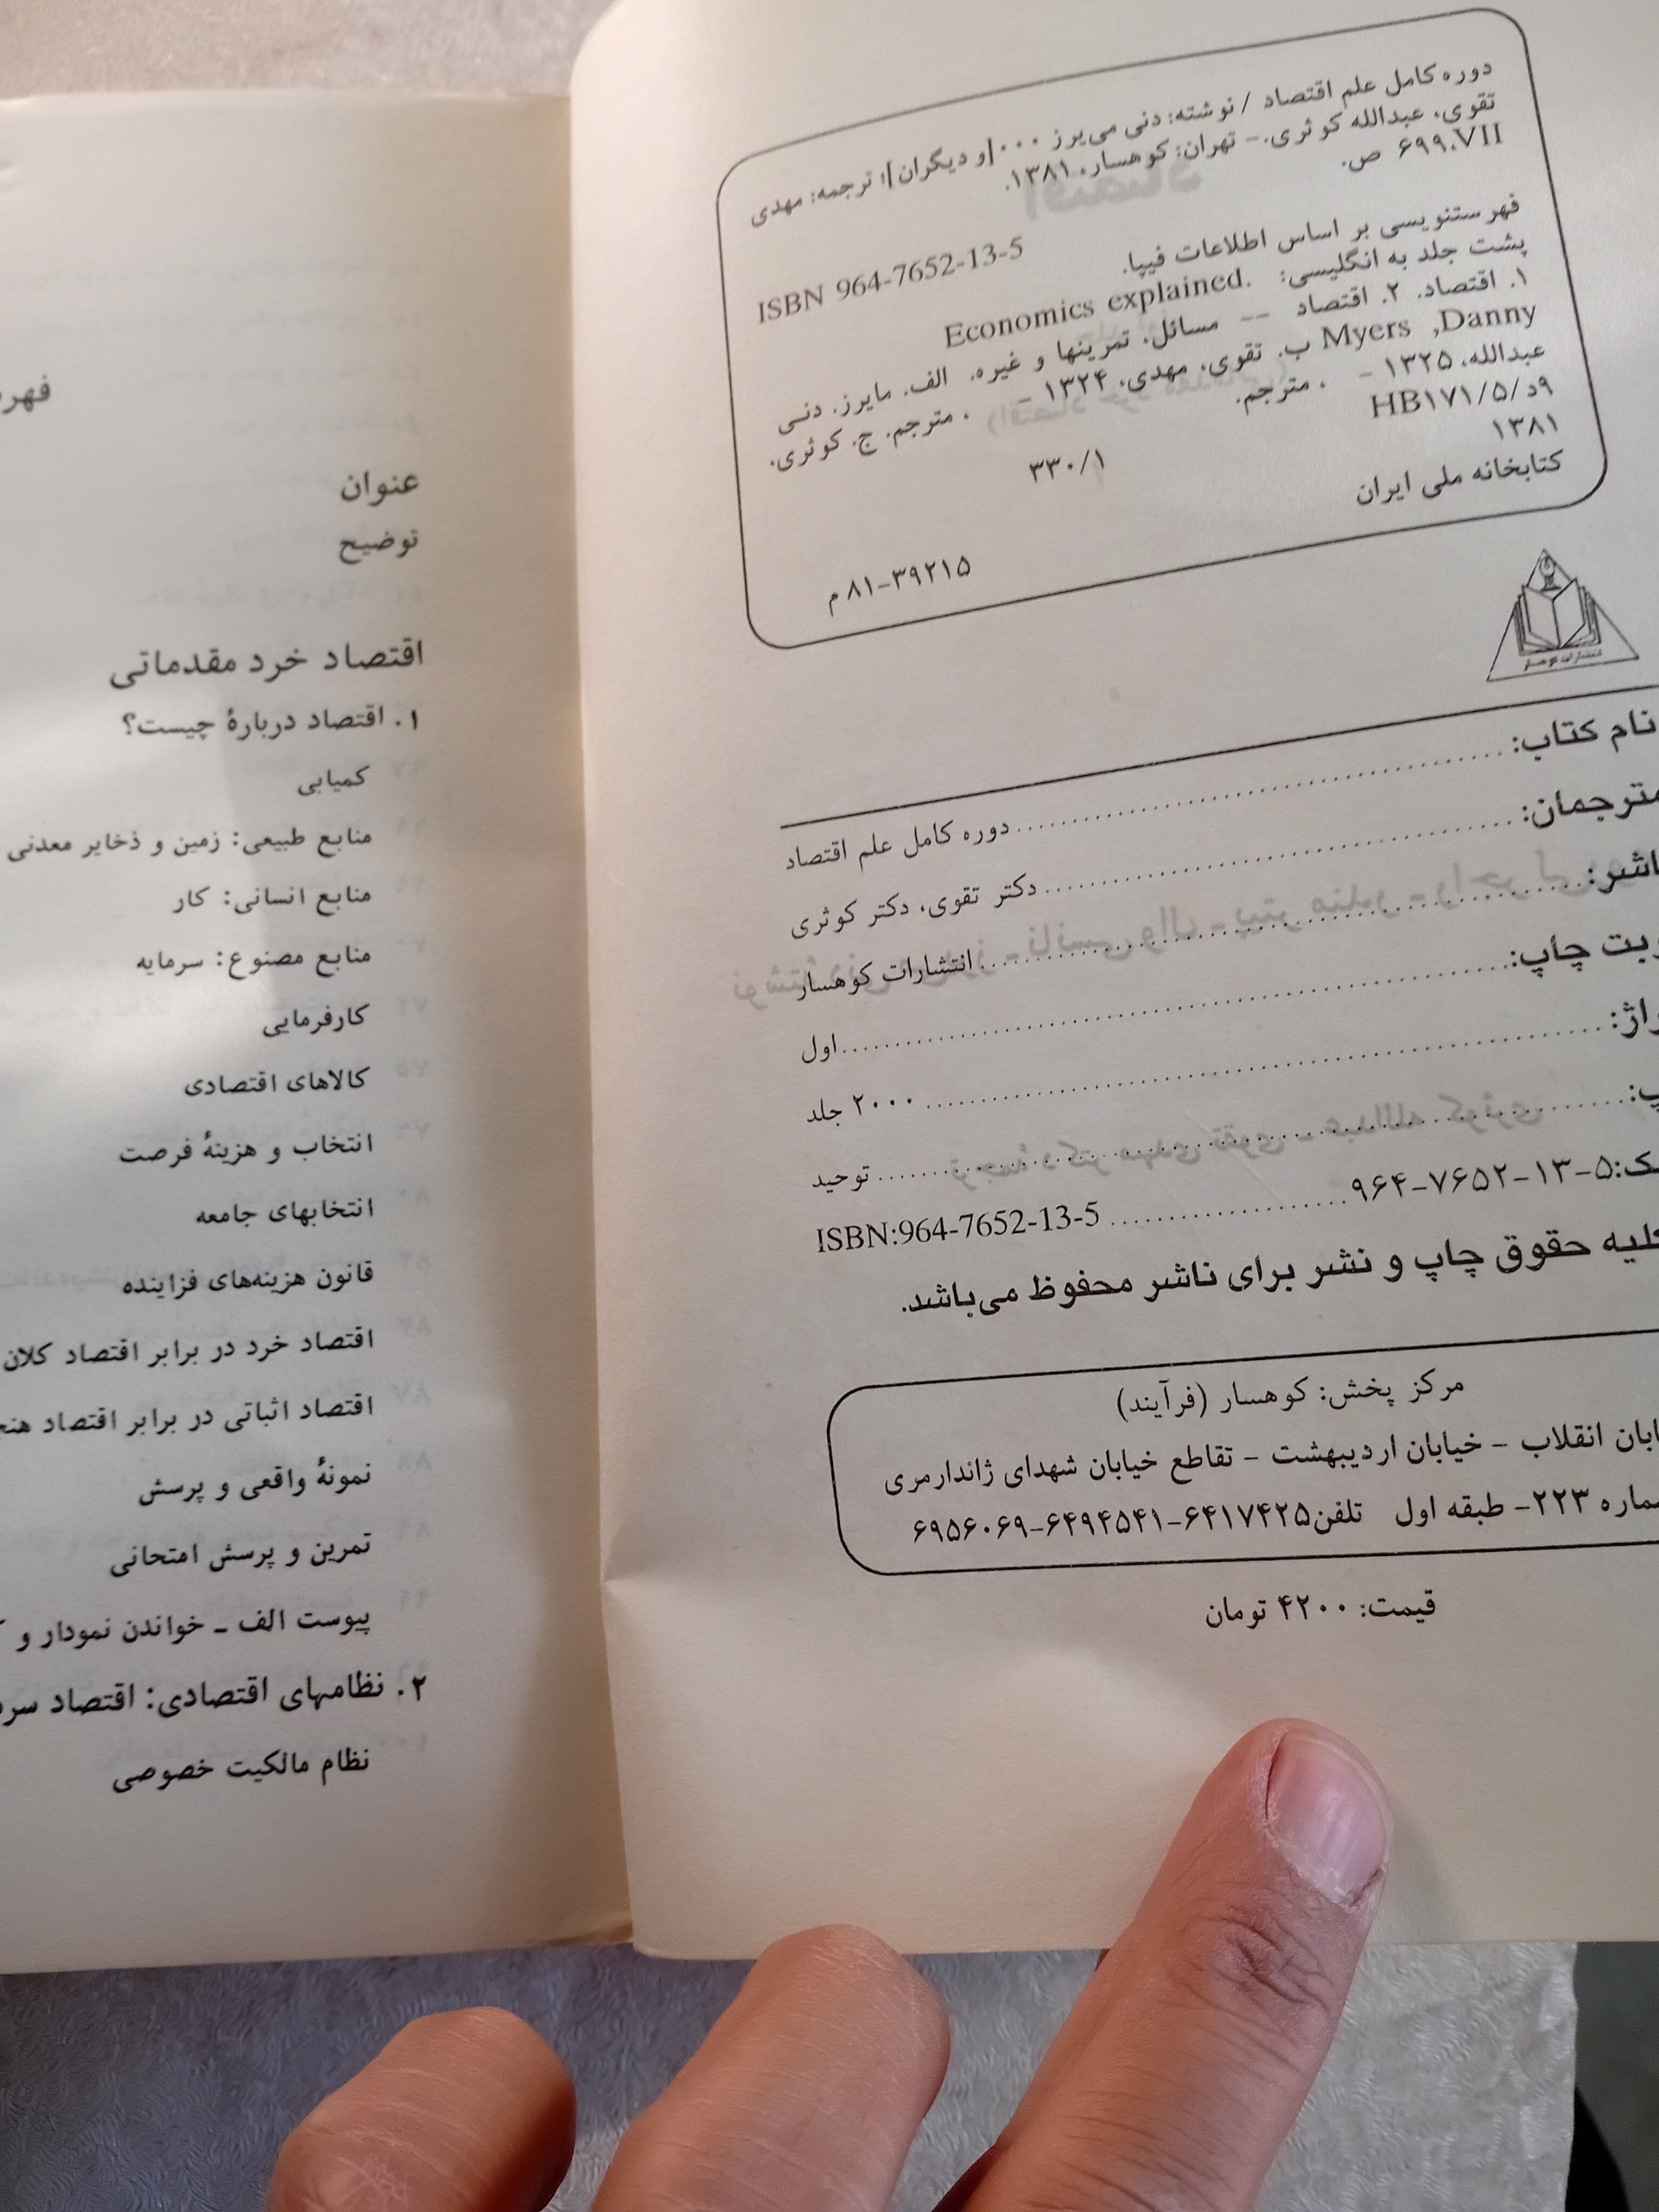 دوره کامل علم اقتصاد / نوشته: دنی می‌یرز ...[و دیگران]؛ ترجمه: مهدی
تقوی، عبدالله کوثری.- تهران: کوهسار، ۱۳۸۱.
۶۹۹،VII ص.
ISBN 964-7652-13-5
فهرستنویسی بر اساس اطلاعات فیپا.
پشت جلد به انگلیسی: Economics explained.
۱. اقتصاد. ۲. اقتصاد -- مسائل، تمرینها و غیره. الف. مایرز. دنی
Myers ,Danny ب. تقوی، مهدی، ۱۳۲۴ - . مترجم. ج. کوثری،
عبدالله، ۱۳۲۵ - . مترجم.
۹د/۵/HB۱۷۱
۱۳۸۱
۳۳۰/۱
کتابخانه ملی ایران
۸۱-۳۹۲۱۵ م
انتشارات کوهسار
نام کتاب: دوره کامل علم اقتصاد
مترجمان: دکتر تقوی، دکتر کوثری
اشر: انتشارات کوهسار
بت چاپ: اول
راژ: ۲۰۰۰ جلد
پ: توحید
ک: ۵-۱۳-۷۶۵۲-۹۶۴ ISBN:964-7652-13-5
لیه حقوق چاپ و نشر برای ناشر محفوظ می‌باشد.
مرکز پخش: کوهسار (فرآیند)
ابان انقلاب - خیابان اردیبهشت - تقاطع خیابان شهدای ژاندارمری
ماره ۲۲۳- طبقه اول تلفن۶۴۱۷۴۲۵-۶۴۹۴۵۴۱-۶۹۵۶۰۶۹
قیمت: ۴۲۰۰ تومان
فهر
عنوان
توضیح
اقتصاد خرد مقدماتی
۱. اقتصاد دربارهٔ چیست؟
کمیابی
منابع طبیعی: زمین و ذخایر معدنی
منابع انسانی: کار
منابع مصنوع: سرمایه
کارفرمایی
کالاهای اقتصادی
انتخاب و هزینهٔ فرصت
انتخابهای جامعه
قانون هزینه‌های فزاینده
اقتصاد خرد در برابر اقتصاد کلان
اقتصاد اثباتی در برابر اقتصاد هنج
نمونهٔ واقعی و پرسش
تمرین و پرسش امتحانی
پیوست الف ـ خواندن نمودار و
۲. نظامهای اقتصادی: اقتصاد سر
نظام مالکیت خصوصی